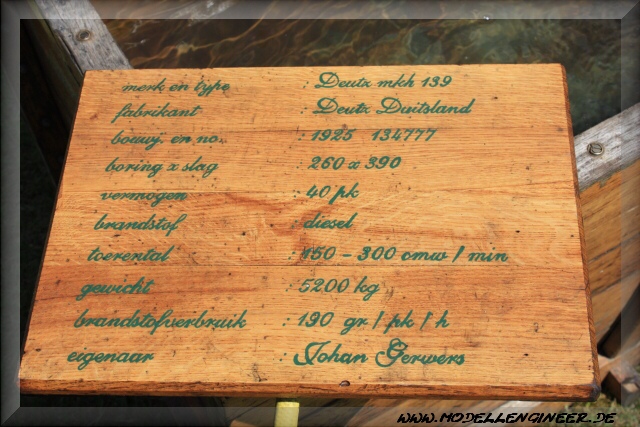 merk en type : Deutz mkh 139
fabrikant : Deutz Duitsland
bouwj. en no. : 1925 134777
boring x slag : 260 x 390
vermogen : 40 pk
brandstof : diesel
toerental : 150 - 300 omw / min
gewicht : 5200 kg
brandstofverbruik : 190 gr / pk / h
eigenaar : Johan Gerwers
WWW.MODELLENGINEER.DE